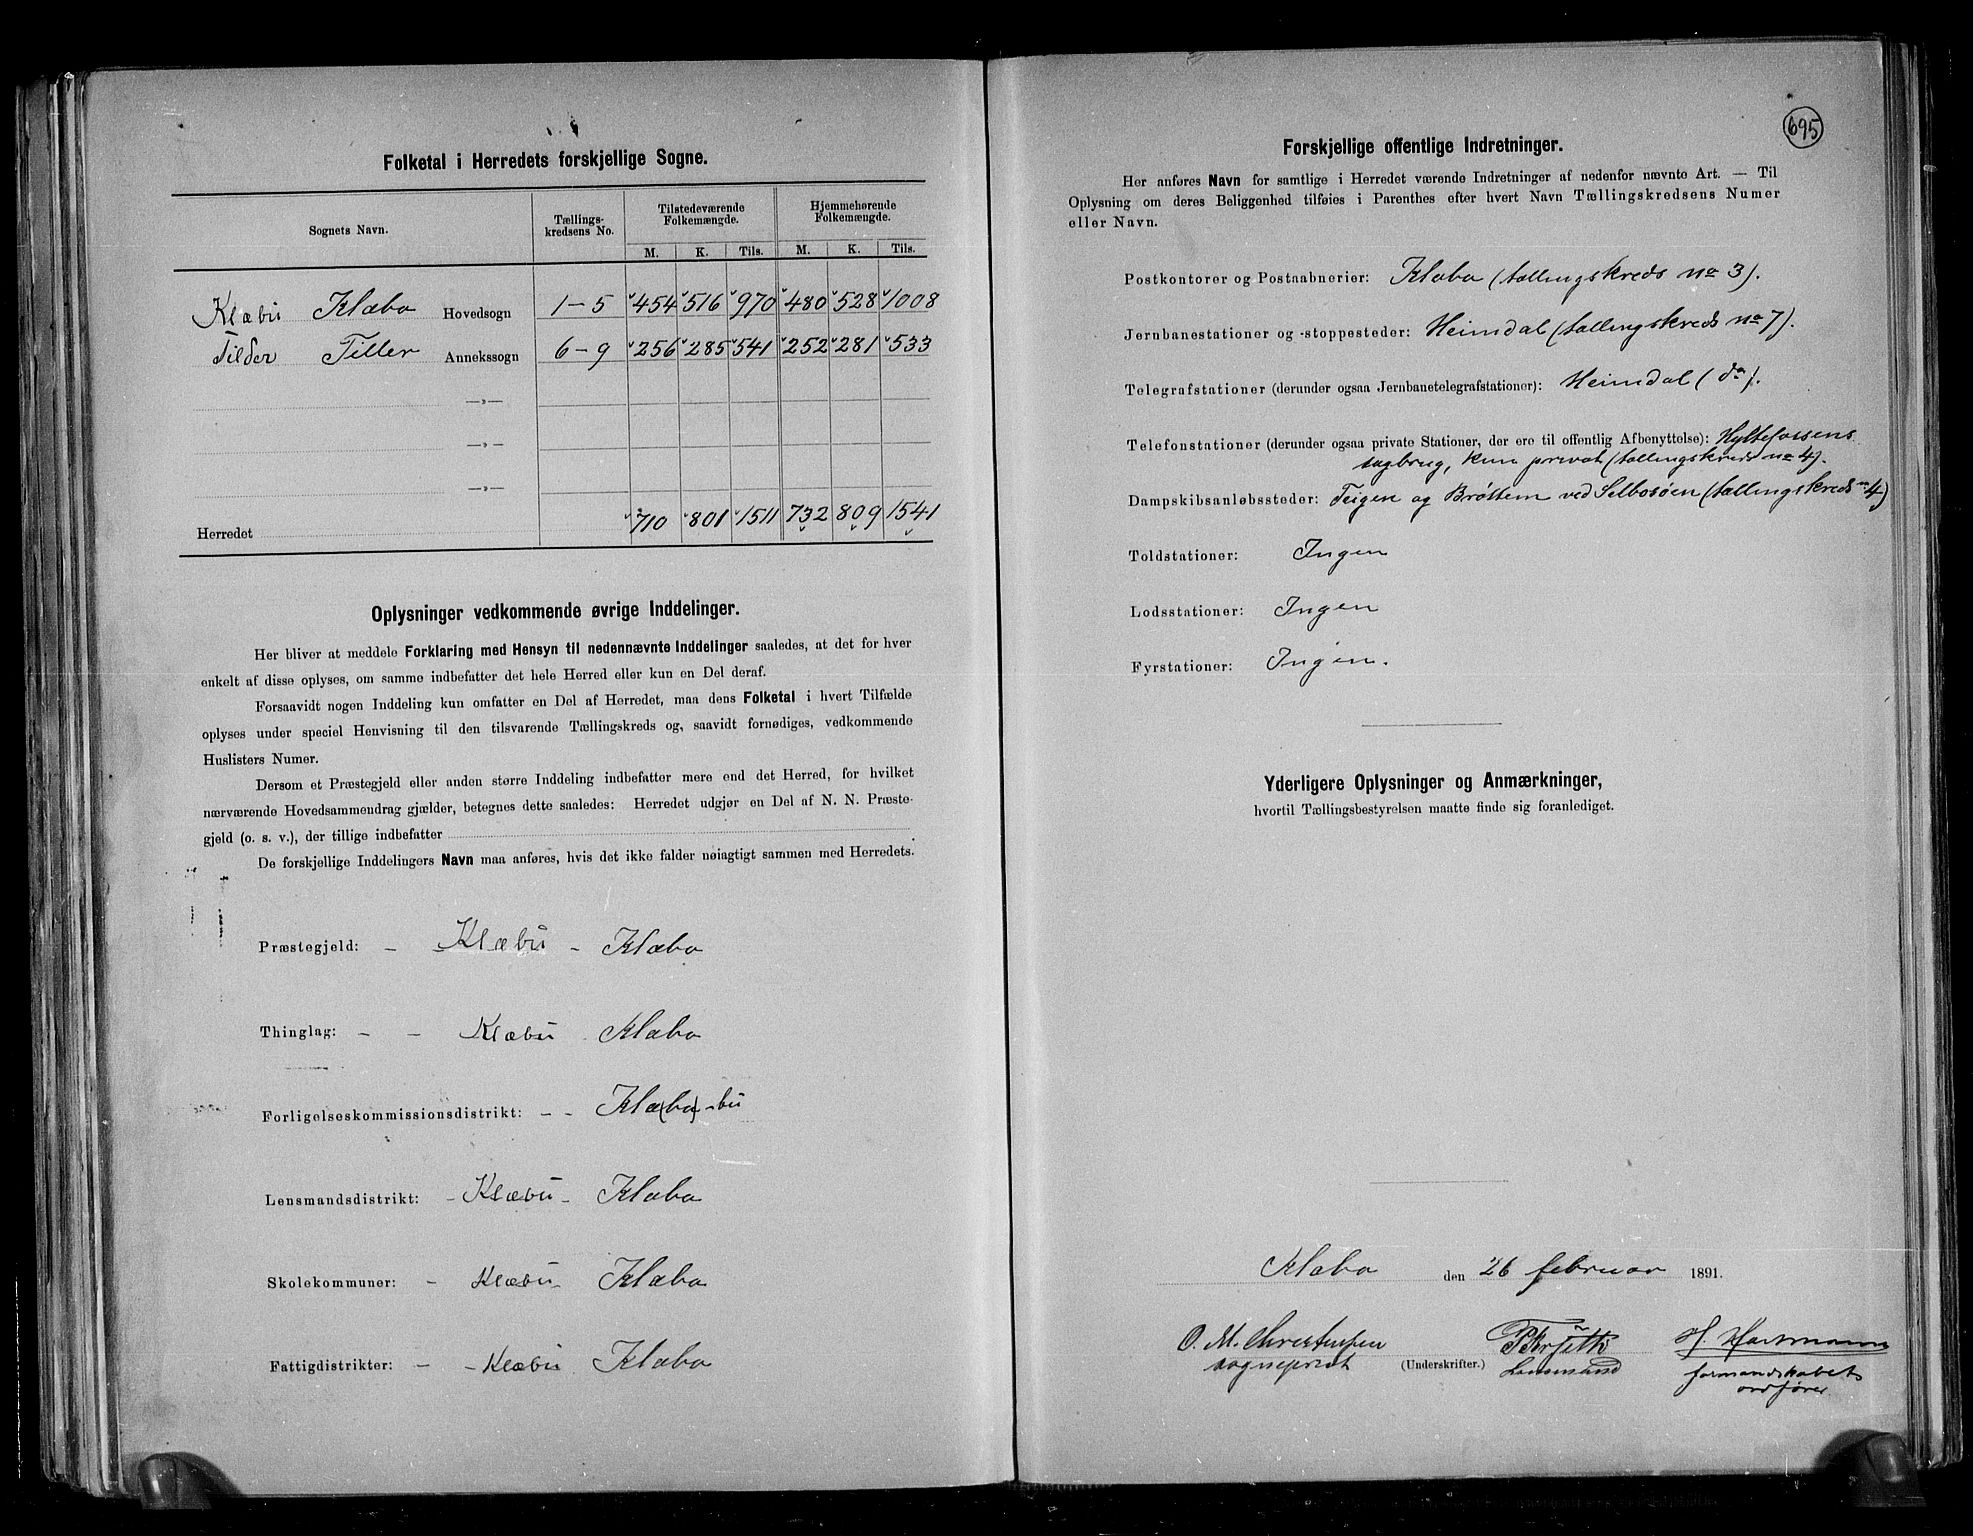 Folketal i Herredets forskjellige Sogne.
Sognets Navn. Tællings- kredsens No. Tilstedeværende Folkemængde. Hjemmehørende Folkemængde.
M. K. Tils. M. K. Tils.
Klæbu Klæbo Hovedsogn 1-5 454 516 970 480 528 1008
Tilder Tiller Annekssogn 6-9 256 285 541 252 281 533
—„—
—„—
—„—
Herredet 710 801 1511 732 809 1541
Oplysninger vedkommende øvrige Inddelinger.
Her bliver at meddele Forklaring med Hensyn til nedennævnte Inddelinger saaledes, at det for hver
enkelt af disse oplyses, om samme indbefatter det hele Herred eller kun en Del deraf.
Forsaavidt nogen Inddeling kun omfatter en Del af Herredet, maa dens Folketal i hvert Tilfælde
oplyses under speciel Henvisning til den tilsvarende Tællingskreds og, saavidt fornødiges, vedkommende
Huslisters Numer.
Dersom et Præstegjeld eller anden større Inddeling indbefatter mere end det Herred, for hvilket
nærværende Hovedsammendrag gjælder, betegnes dette saaledes: Herredet udgjør en Del af N. N. Præste-
gjeld (o. s. v.), der tillige indbefatter
De forskjellige Inddelingers Navn maa anføres, hvis det ikke falder nøiagtigt sammen med Herredets.
Præstegjeld: - Klæbu - Klæbo
Thinglag: - - Klæbu Klæbo
Forligelseskommissionsdistrikt: - - Klæ(bo) -bu
Lensmandsdistrikt: - Klæbu - Klæbo
Skolekommuner: - Klæbu Klæbo
Fattigdistrikter: - - Klæbu Klæbo
695
Forskjellige offentlige Indretninger.
Her anføres Navn for samtlige i Herredet værende Indretninger af nedenfor nævnte Art. — Til
Oplysning om deres Beliggenhed tilføies i Parenthes efter hvert Navn Tællingskredsens Numer
eller Navn.
Postkontorer og Postaabnerier: Klæbo (tællingskreds no 3).
Jernbanestationer og -stoppesteder: Heimdal (tællingskreds no 7).
Telegrafstationer (derunder ogsaa Jernbanetelegrafstationer): Heimdal (do).
Telefonstationer (derunder ogsaa private Stationer, der ere til offentlig Afbenyttelse): Hyttefossens
sagbrug, kun privat (tællingskreds no 4).
Dampskibsanløbssteder: Teigen og Brøttem ved Selbosøen (tællingskreds no 4)
Toldstationer: Ingen
Lodsstationer: Ingen
Fyrstationer: Ingen.
Yderligere Oplysninger og Anmærkninger,
hvortil Tællingsbestyrelsen maatte finde sig foranlediget.
Klæbo den 26 februar 1891.
O. M. Christensen H. Hartmann
sogneprest (Underskrifter.) Lensmand formandskabets
ordfører